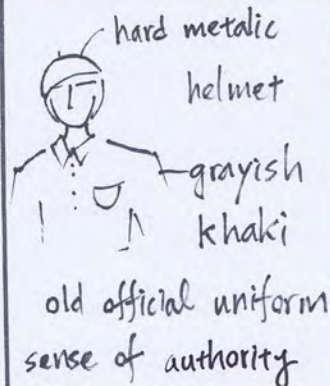 hard metalic
helmet
grayish
khaki
old official uniform
sense of authority